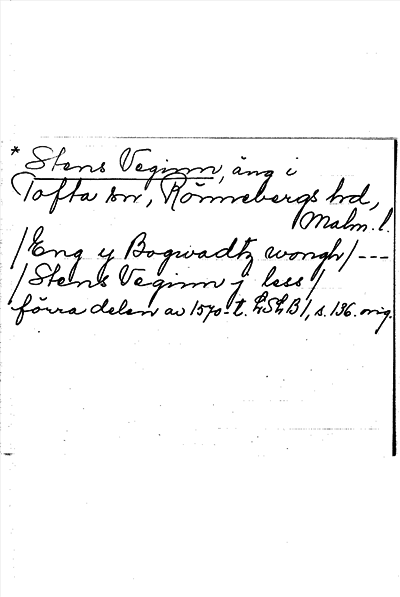 * Stens Veginn, äng i
Tofta sn, Rönnebergs hd,
Malm. l.
/Eng y Bogwadtz wongh/ ---
/Stens Veginn j less/
förra delen av 1570-t. LSLB1, s. 136. orig.